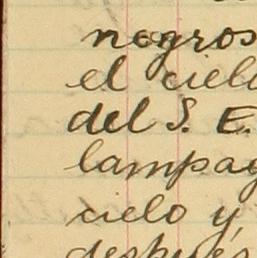 negros
el cielo
del S. E.
lampag
cielo y
después